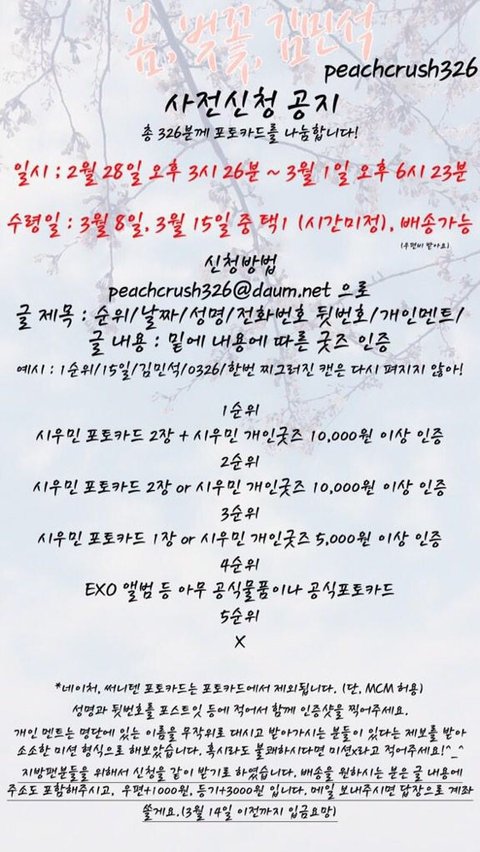 봄, 벚꽃, 김민석
peachcrush326
사전신청 공지
총 326분께 포토카드를 나눔합니다!
일시 : 2월 28일 오후 3시 26분 ~ 3월 1일 오후 6시 23분
수령일 : 3월 8일, 3월 15일 중 택1 (시간미정), 배송가능
(우편비 받아요)
신청방법
peachcrush326@daum.net 으로
글 제목 : 순위/날짜/성명/전화번호 뒷번호/개인멘트/
글 내용 : 밑에 내용에 따른 굿즈 인증
예시 : 1순위/15일/김민석/0326/한번 찌그러진 캔은 다시 펴지지 않아!
1순위
시우민 포토카드 2장 + 시우민 개인굿즈 10,000원 이상 인증
2순위
시우민 포토카드 2장 or 시우민 개인굿즈 10,000원 이상 인증
3순위
시우민 포토카드 1장 or 시우민 개인굿즈 5,000원 이상 인증
4순위
EXO 앨범 등 아무 공식물품이나 공식포토카드
5순위
X
*네이처, 써니텐 포토카드는 포토카드에서 제외됩니다. (단, MCM 허용)
성명과 뒷번호를 포스트잇 등에 적어서 함께 인증샷을 찍어주세요.
개인 멘트는 명단에 있는 이름을 무작위로 대시고 받아가시는 분들이 있다는 제보를 받아
소소한 미션 형식으로 해보았습니다. 혹시라도 불쾌하시다면 미션x라고 적어주세요!^_^
지방팬분들을 위해서 신청을 같이 받기로 하였습니다. 배송을 원하시는 분은 글 내용에
주소도 포함해주시고, 우편+1000원, 등기+3000원 입니다. 메일 보내주시면 답장으로 계좌
쏠게요.(3월 14일 이전까지 입금요망)